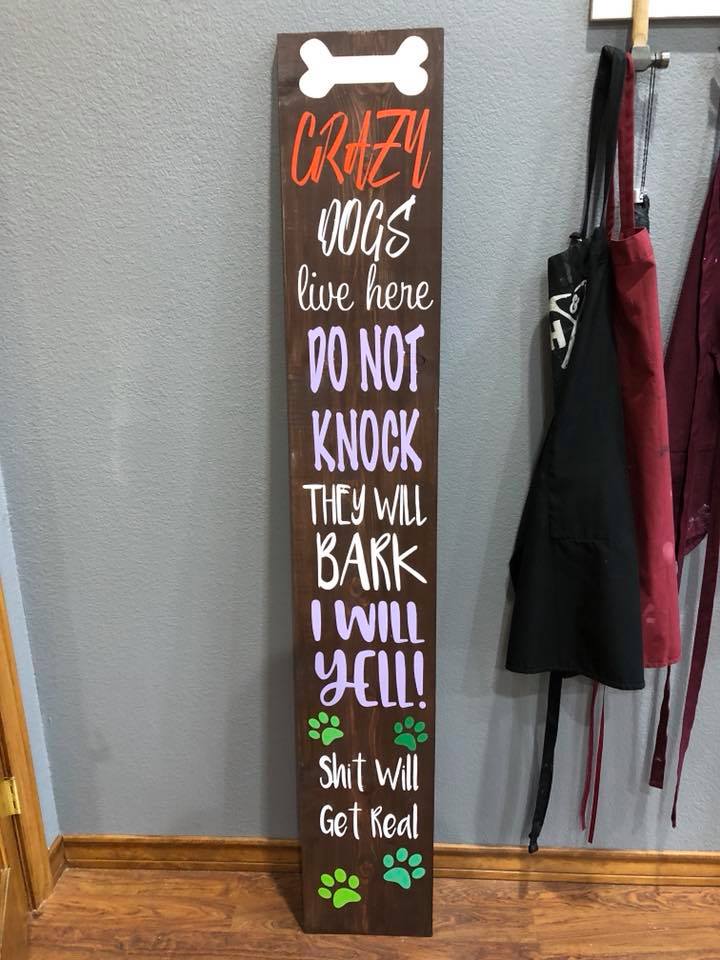 CRAZY
DOGS
live here
DO NOT
KNOCK
THEY WILL
BARK
I WILL
YELL!
Shit Will
Get Real